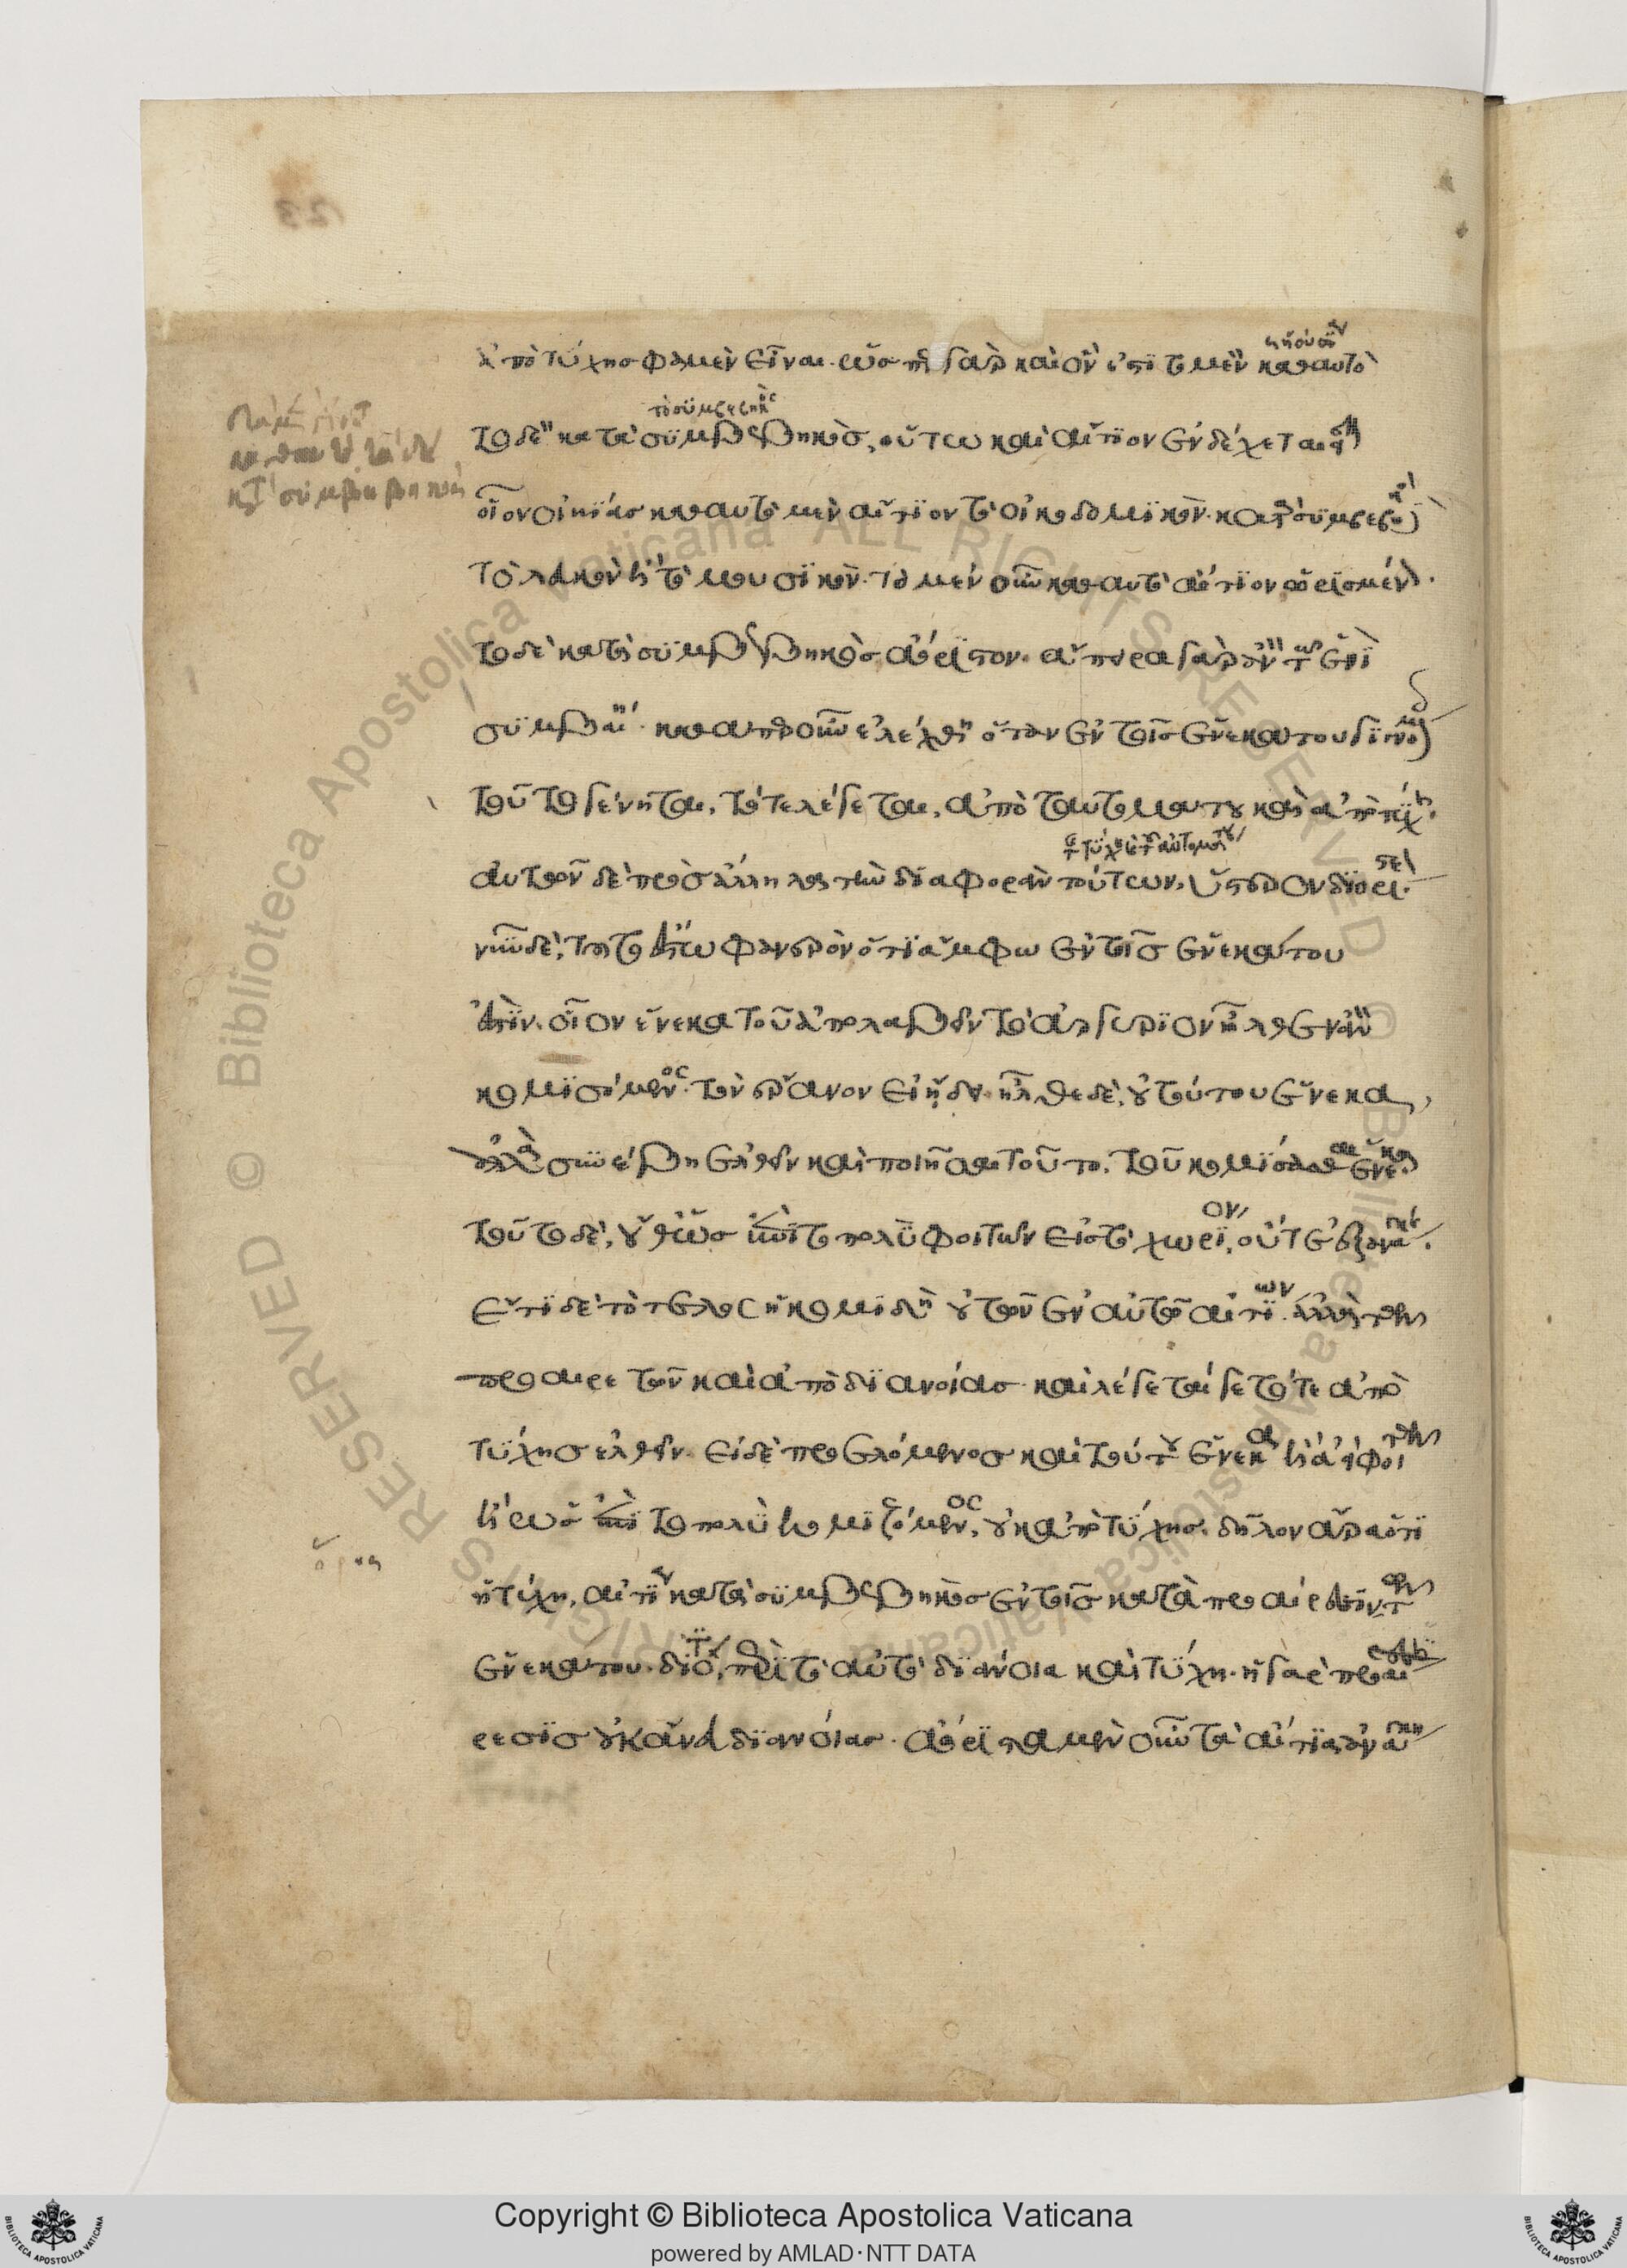 ἀπὸ τύχης φαμὲν εἶναι. ὥσπερ γὰρ καὶ ὄν ἐστι τὸ μὲν καθ' αυτὸ
ἡ οὐσία
τὸ δὲ κατὰ συμβεβηκὸς, οὕτω καὶ αἴτιον ἐνδέχεται εἶναι
τὸ συμβεβηκὸς
οἷον οἰκίας καθ' αυτὸ μὲν αἴτιον τὸ οἰκοδομικὸν. κατὰ συμβεβηκὸς δὲ
τὸ λευκὸν ἢ τὸ μουσικὸν. τὸ μὲν οὖν καθ' αυτὸ αἴτιον ὡρισμένον.
τὸ δὲ κατὰ συμβεβηκὸς ἀόριστον. ἄπειρα γὰρ ἂν τῷ ἑνὶ
συμβαίη. καθάπερ οὖν ἐλέχθη ὅταν ἐν τοῖς ἕνεκά του γινομένοις
τοῦτο γένηται, τότε λέγεται, ἀπὸ ταυτομάτου καὶ ἀπὸ τύχης.
αυτῶν δὲ πρὸς ἄλληλα τὴν διαφορὰν τούτων, ὕστερον διοριστέον.
τῆς τύχης καὶ τοῦ αὐτομάτου
νῦν δὲ, τοῦτο ἔστω φανερὸν ὅτι ἄμφω ἐν τοῖς ἕνεκά του
ἐστὶν. οἷον ἕνεκα τοῦ ἀπολαβεῖν τὸ ἀργύριον ἦλθεν ἂν
κομισόμενος τὸν ἔρανον εἰ ᾔδει. ἦλθε δὲ, οὐ τούτου ἕνεκα,
ἀλλὰ συνέβη ἐλθεῖν καὶ ποιῆσαι τοῦτο. τοῦ κομίσασθαι ἕνεκα.
τοῦτο δὲ, οὔθ' ὡς ἐπὶ τὸ πολὺ φοιτῶν εἰς τὸ χωρίον, οὔτ' ἐξ ἀνάγκης.
ἔστι δὲ τὸ τέλος ἡ κομιδὴ οὐ τῶν ἐν αὐτῶ αἰτίων. ἀλλὰ τῶν
προαιρετῶν καὶ ἀπὸ διανοίας. καὶ λέγεταί γε τότε ἀπὸ
τύχης ἐλθεῖν. εἰ δὲ προελόμενος καὶ τούτου ἕνεκα ἢ ἀεὶ φοιτῶν
ἢ ὡς ἐπὶ τὸ πολὺ κομιζόμενος, οὐκ ἀπὸ τύχης. δῆλον ἄρα ὅτι
ἡ τύχη, αἰτία κατὰ συμβεβηκὸς ἐν τοῖς κατὰ προαίρεσιν τῶν
ἕνεκά του. διὸ, περὶ τὸ αὐτὸ διάνοια καὶ τύχη. ἡ γὰρ προαί
ρεσις οὐκ ἄνευ διανοίας. ἀόριστα μὲν οὖν τὰ αἴτια ἀνάγκη